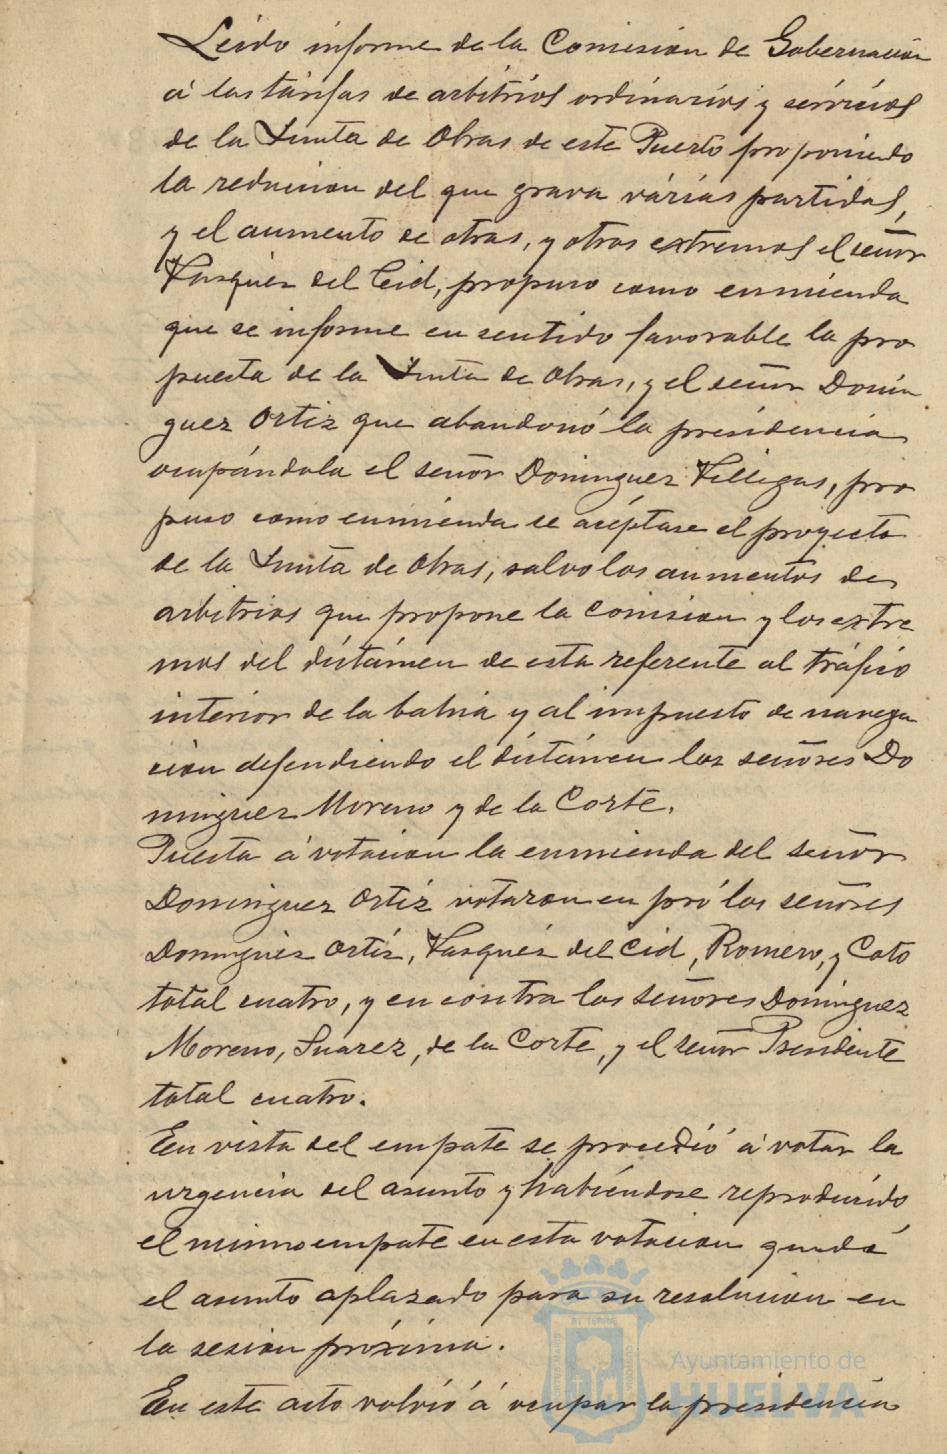 Leido informe de la Comision de Gobernación
á las tarifas de arbitrios ordinarios y servicios
de la Junta de Obras de este Puerto proponiendo
la reducion del que grava várias partidas,
y el aumento de otras, y otros extremos el señor
Vasquez del Cid, propuso como enmienda
que se informe en sentido favorable la pro
puesta de la Junta de Obras, y el señor Domin
guez Ortiz que abandonó la presidencia
ocupándola el señor Dominguez Villegas, pro
puso como enmienda se aceptase el proyecto
de la Junta de Obras, salvo los aumentos de
arbitrios que propone la comision y los extre
mos del dictámen de esta referente al tráfico
interior de la bahia y al impuesto de navega
cion defendiendo el dictámen los señores Do
minguez Moreno y de la Corte.
Puesta á votacion la enmienda del señor
Dominguez Ortiz votaron en pró los señores
Dominguez Ortiz, Vasquez del Cid, Romero, y Coto
total cuatro, y en contra los señores Dominguez
Moreno, Suarez, de la Corte, y el señor Presidente
total cuatro.
En vista del empate se procedió á votar la
urgencia del asunto y habiéndose reproducido
el mismo empate en esta votacion quedó
el asunto aplazado para su resolucion en
la sesion próxima.
En este acto volvió á ocupar la presidencia
Ayuntamiento de
HUELVA